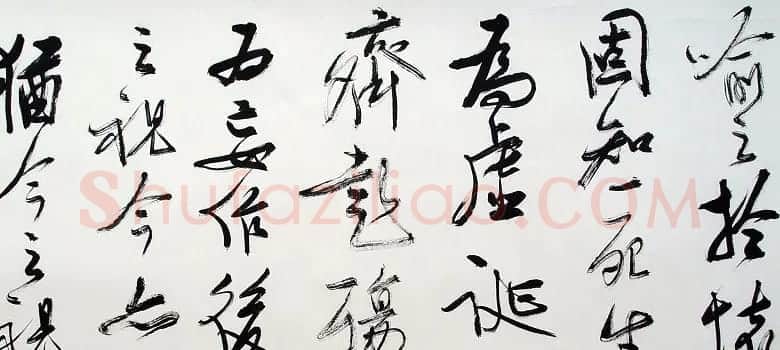 喻之於懷
固知一死生
為虛誕
齊彭殤
為妄作後
之視今亦
猶今之視
Shufaziliao.COM